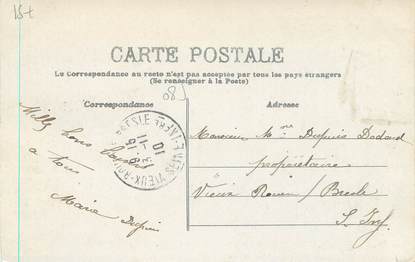 15t
CARTE POSTALE
La Correspondance au recto n'est pas acceptée par tous les pays étrangers
(Se renseigner à la Poste)
08
Correspondance
Adresse
Mille bons baisers
a tous
Marie Dupuis
VIEUX-ROUEN
10
11
Monsieur Mme Dupuis Dodard
propriétaire
Vieux Rouen / Bresle
S. Inf.